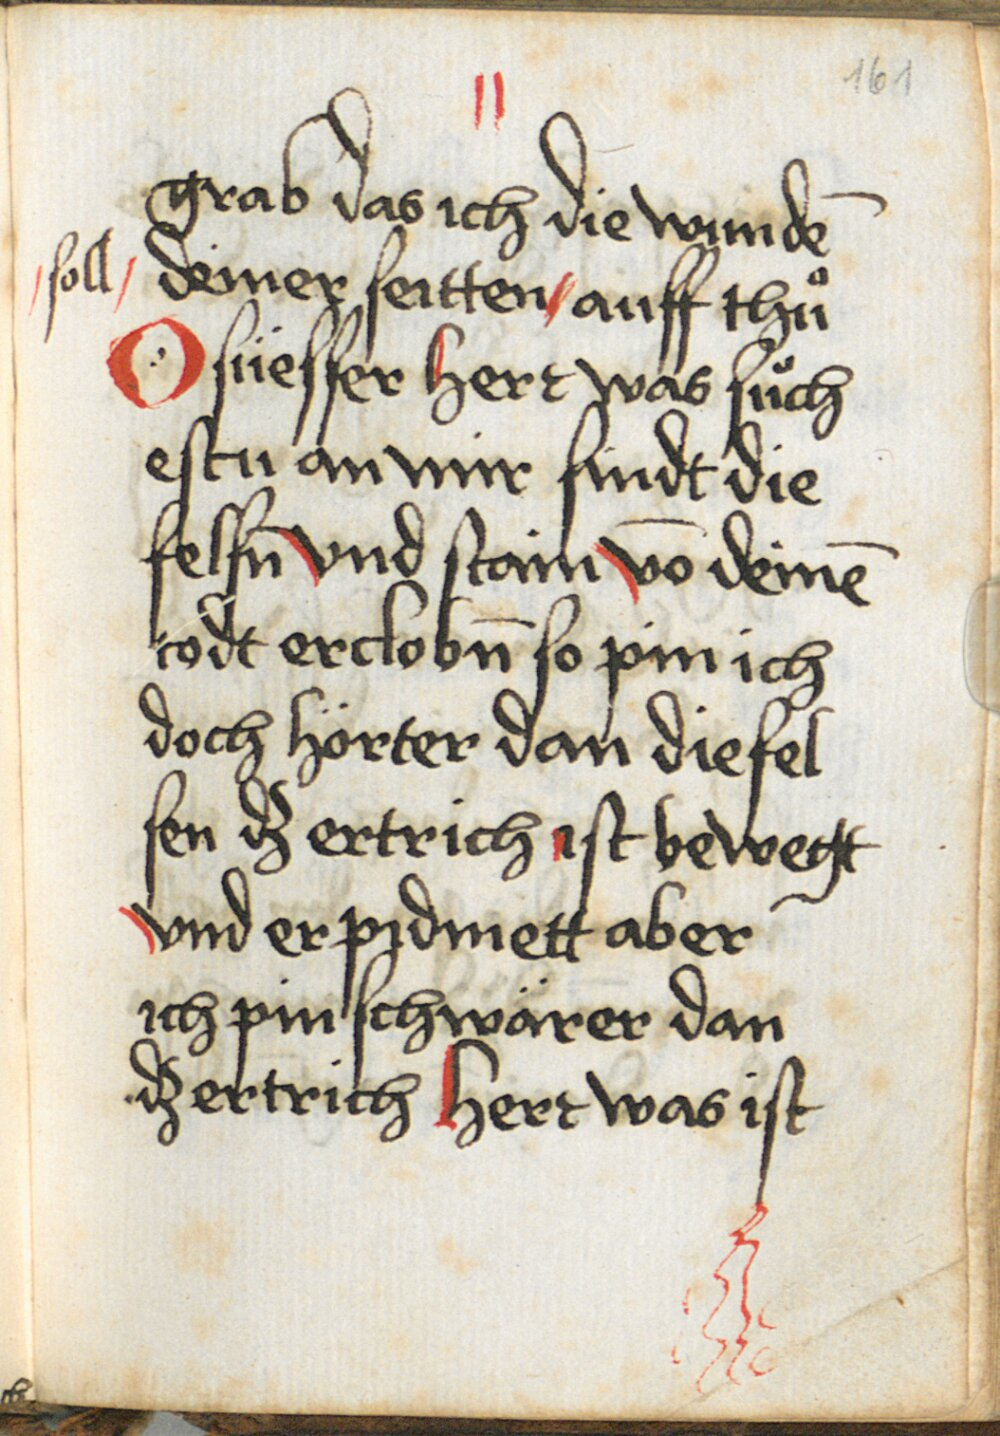 161
||
grab das ich die wundē
/soll/ deiner seitten / auff thuͦ
O süesser hert was suͦch
estu an mir sindt die
felsn̄ vnd stain vō deinē
todt erclobn̄ so pin ich
doch hörter dan die fel
sen dz ertrich ist bewegt
vnd erpidmett aber
ich pin schwärer dan
dz ertrich hert was ist